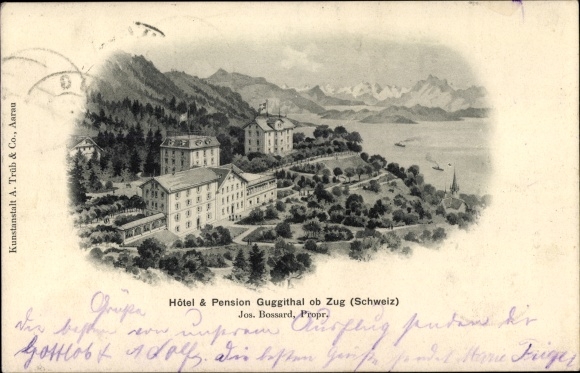 Kunstanstalt A. Trüb & Co., Aarau
Hôtel & Pension Guggithal ob Zug (Schweiz)
Jos. Bossard, Propr.
Grüße
die besten von unserem Ausflug senden dir
Gottlob & Adolf. Die besten Grüße sendet Marie